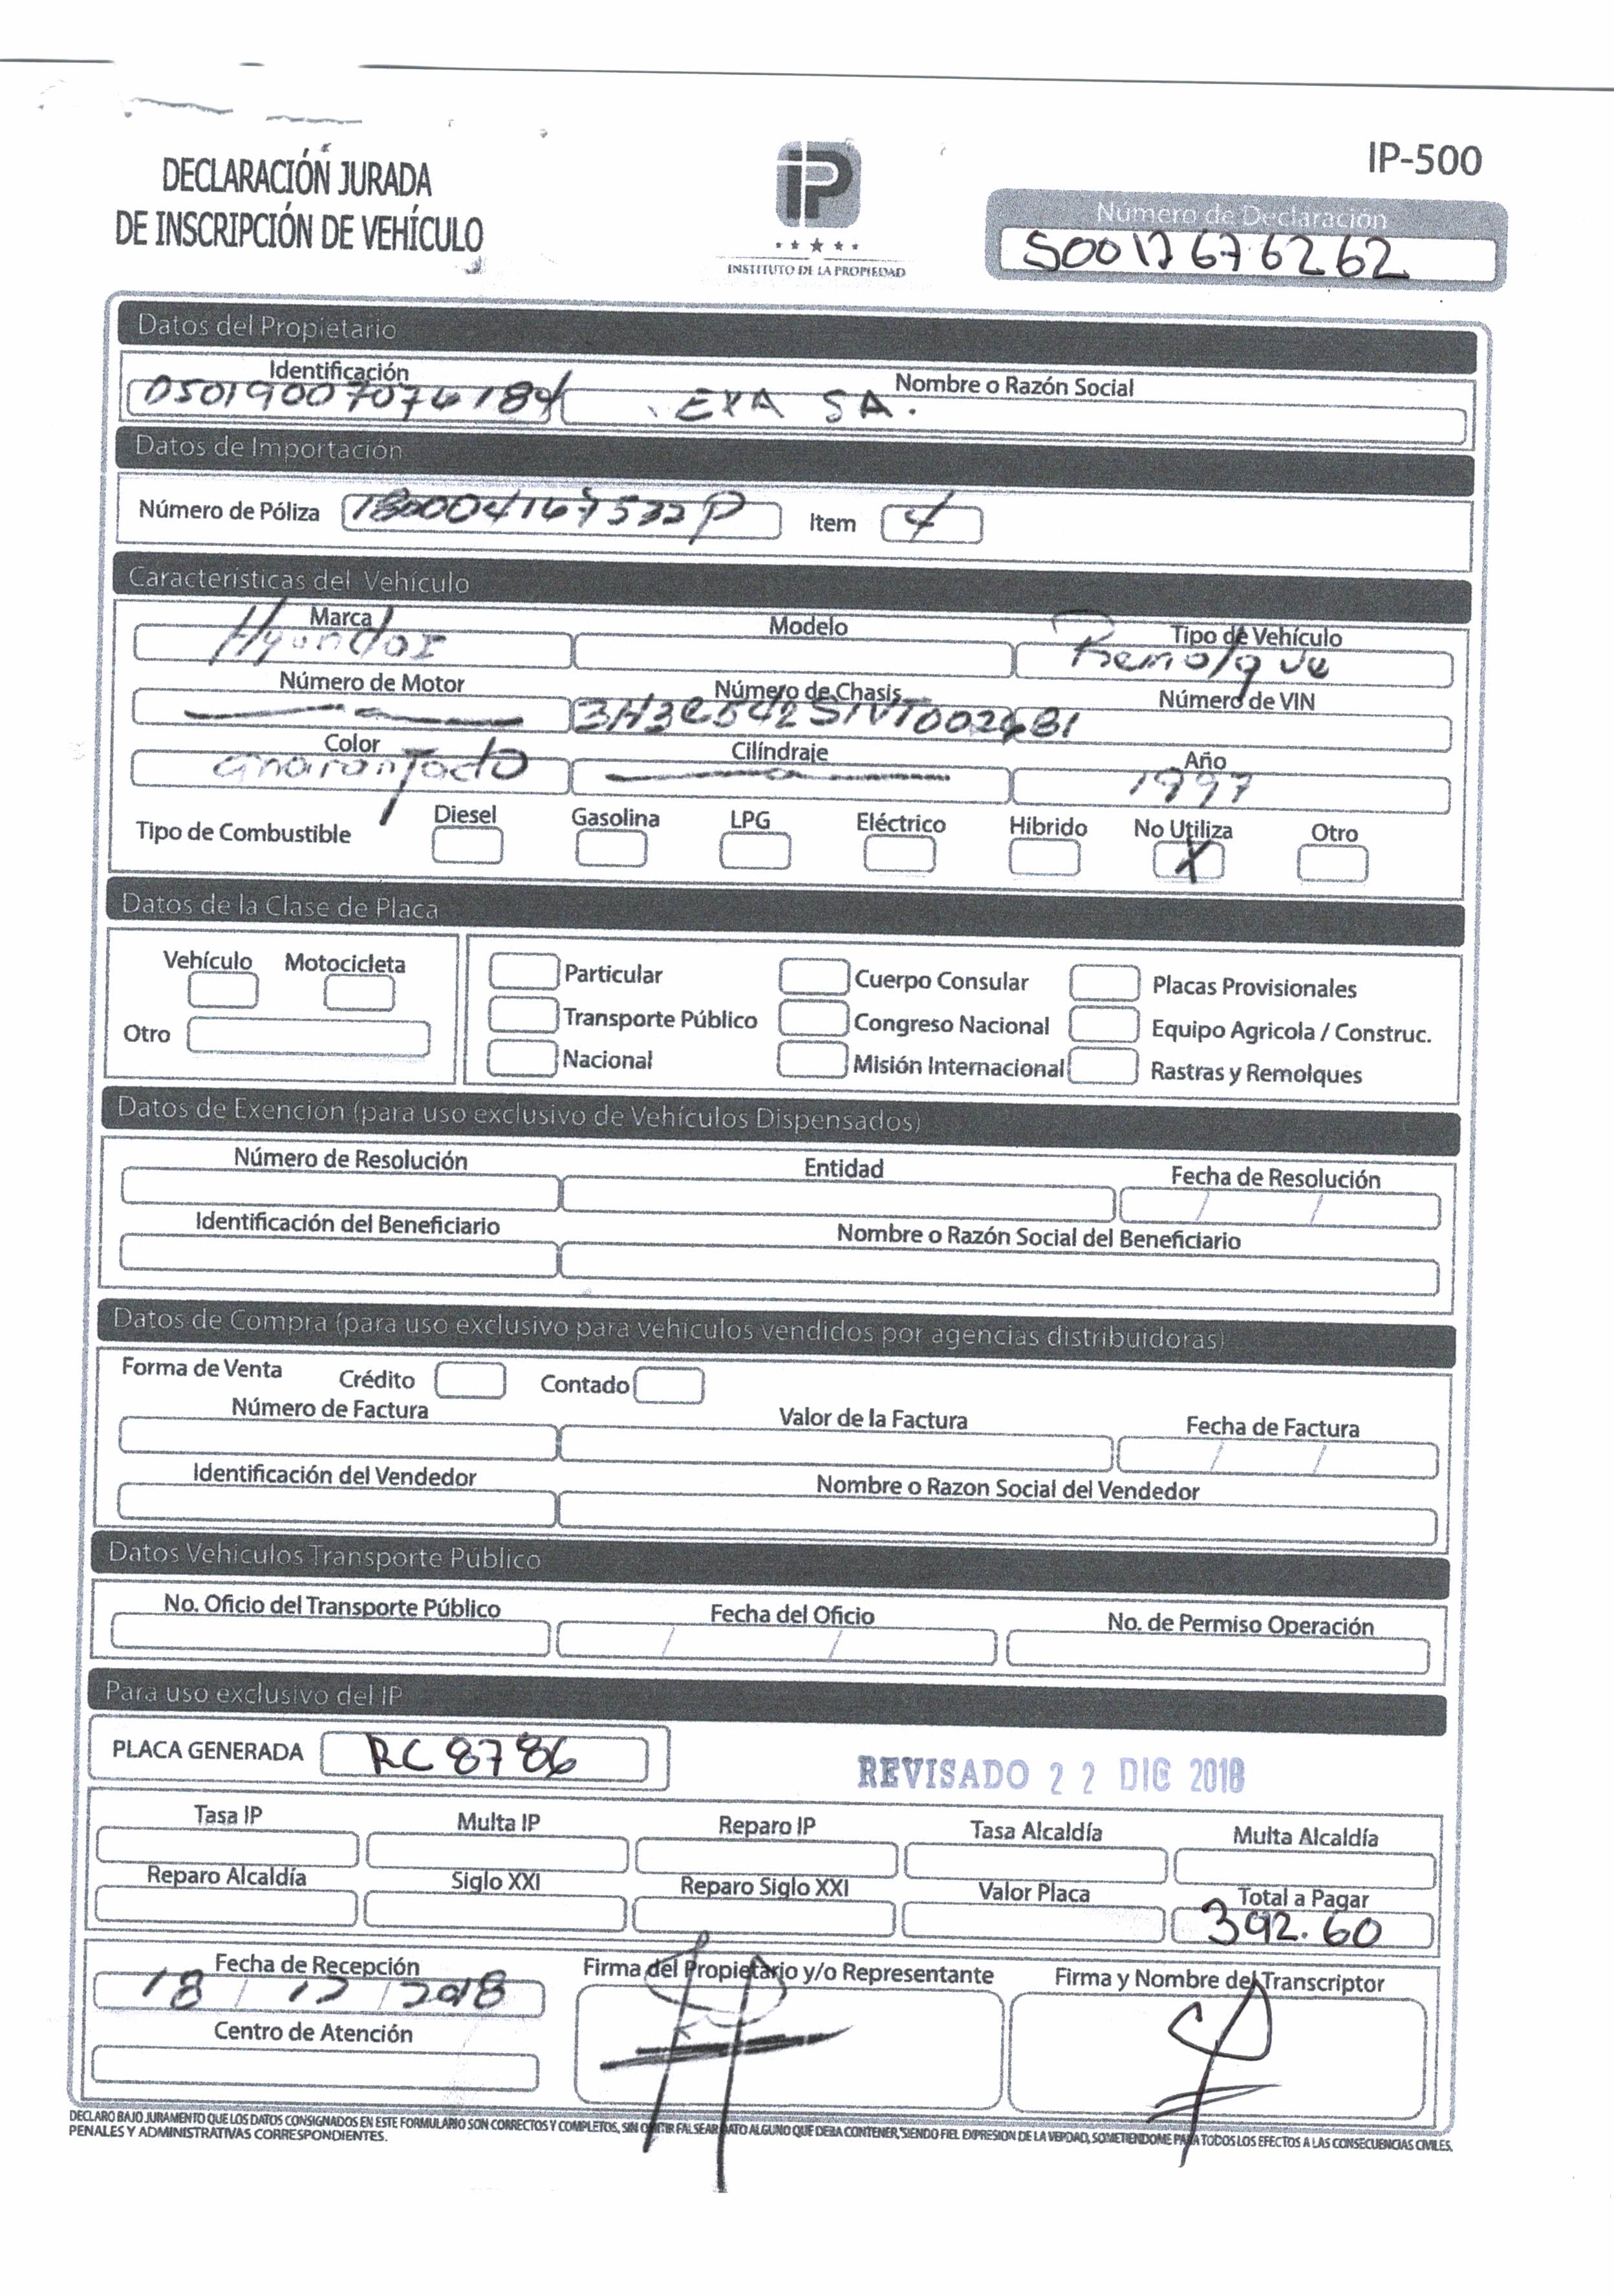 IP-500
DECLARACIÓN JURADA
DE INSCRIPCIÓN DE VEHÍCULO
iP
INSTITUTO DE LA PROPIEDAD
Número de Declaración
50017676262
Datos del Propietario
Identificación Nombre o Razón Social
EXA SA.
Datos de Importación
Número de Póliza Item 4
Características del Vehículo
Marca Modelo Tipo de Vehículo
Hyundai Remolque
Número de Motor Número de Chasis Número de VIN
Color Cilíndraje Año
anaranjado 1997
Tipo de Combustible Diesel Gasolina LPG Eléctrico Hibrido No Utiliza Otro
X
Datos de la Clase de Placa
Vehículo Motocicleta
Otro
Particular Cuerpo Consular Placas Provisionales
Transporte Público Congreso Nacional Equipo Agricola / Construc.
Nacional Misión Internacional Rastras y Remolques
Datos de Exención (para uso exclusivo de Vehículos Dispensados)
Número de Resolución Entidad Fecha de Resolución
/ /
Identificación del Beneficiario Nombre o Razón Social del Beneficiario
Datos de Compra (para uso exclusivo para vehículos vendidos por agencias distribuidoras)
Forma de Venta Crédito Contado
Número de Factura Valor de la Factura Fecha de Factura
/ /
Identificación del Vendedor Nombre o Razon Social del Vendedor
Datos Vehículos Transporte Público
No. Oficio del Transporte Público Fecha del Oficio No. de Permiso Operación
/ /
Para uso exclusivo del IP
PLACA GENERADA RC 8786
REVISADO 22 DIC 2018
Tasa IP Multa IP Reparo IP Tasa Alcaldía Multa Alcaldía
Reparo Alcaldía Siglo XXI Reparo Siglo XXI Valor Placa Total a Pagar
392.60
Fecha de Recepción Firma del Propietario y/o Representante Firma y Nombre del Transcriptor
18 / 12 / 2018
Centro de Atención
DECLARO BAJO JURAMENTO QUE LOS DATOS CONSIGNADOS EN ESTE FORMULARIO SON CORRECTOS Y COMPLETOS, SIN OMITIR FALSEAR DATO ALGUNO QUE DEBA CONTENER, SIENDO FIEL EXPRESION DE LA VERDAD, SOMETIENDOME PARA TODOS LOS EFECTOS A LAS CONSECUENCIAS CIVILES,
PENALES Y ADMINISTRATIVAS CORRESPONDIENTES.